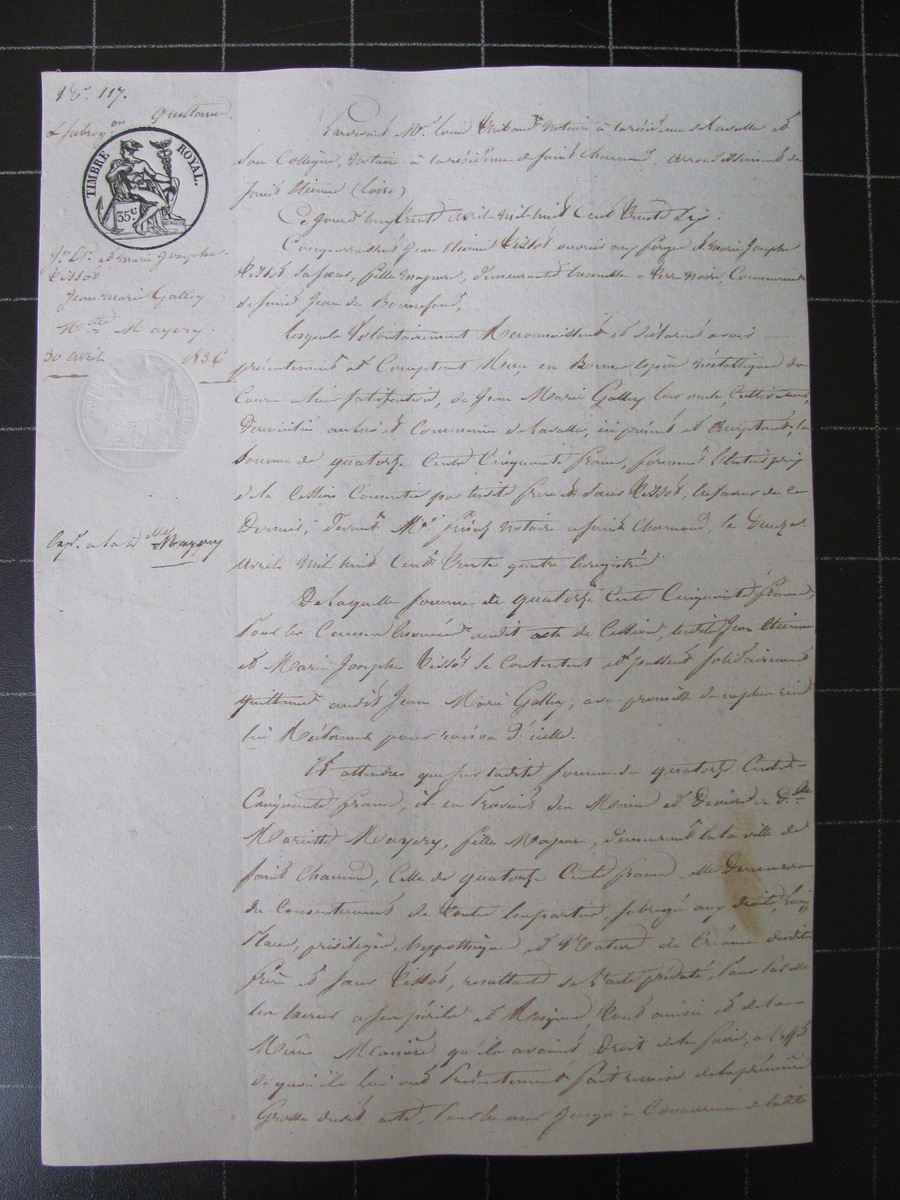 No. 117.
Quittance
& subrogon
TIMBRE ROYAL.
35c
Jn. Et. et Marie Josephe
Tissot
Jean Marie Galley
Mtte Mazery.
30 avril 1836
Exp. a la dlle Mazery
Pardevant Me. Louis Thibaud Notaire à la résidence de Lavalla et
son Collègue, Notaire à la résidence de Saint Chamond, arrondissement de
Saint Etienne (Loire)
Ce jourd'hui trente avril mil huit cent trente six.
Comparaissent Jean Etienne Tissot ouvrier aux forges et Marie Josephe
Tissot sa sœur, fille majeure, demeurants ensemble à Terre Noire, Commune
de Saint Jean de Bonnefond,
Lesquels volontairement reconnaissent et déclarent avoir
présentement et comptant reçu en bonnes espèces métalliques de
cours a leur satisfaction, de Jean Marie Galley leur oncle, Cultivateur,
domicilié au lieu et Commune de Lavalla, ici présent et acceptant, la
somme de quatorze cents cinquante francs, formant le total prix
de la cession consentie par lesdits frère et sœur Tissot, en faveur de ce
dernier, devant Me. Notaire a Saint Chamond, le
avril mil huit cent trente quatre Enregistré
De laquelle somme de quatorze cents cinquante francs
pour les causes énoncées audit acte de cession, lesdits Jean Etienne
et Marie Josephe Tissot se contentent et passent solidairement
quittance audit Jean Marie Galley, avec promesse de ne plus rien
lui réclamer pour raison d'icelle.
Et attendu que sur ladite somme de quatorze cents
cinquante francs, il en provient des mains et deniers de Dlle
Mariette Mazery, fille majeure, demeurant en la ville de
Saint Chamond, celle de quatorze cents francs, elle demeurera
du consentement de toutes les parties, subrogée aux droits, lieu,
place, privilèges, hypothèque et nature de créance desdits
frère et sœur Tissot, resultant de l'acte prédaté, pour par elle
les exercer a ses périls et risques, tout ainsi et de la
même manière qu'ils avaient droit de le faire, a l'effet
de quoi ils lui ont présentement fait remise de la première
Grosse dudit acte, pour en user jusqu'à concurrence de ladite